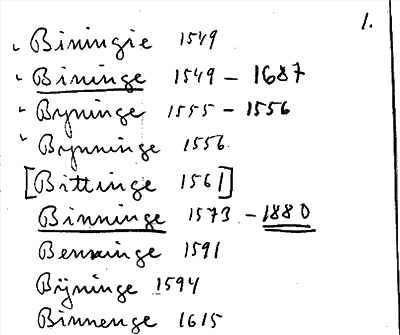 1.
Biningie 1549
Bininge 1549 - 1687
Byninge 1555 - 1556
Bynninge 1556
[Bittinge 1561]
Binninge 1573 - 1880
Benninge 1591
Bÿninge 1594
Binnenge 1615